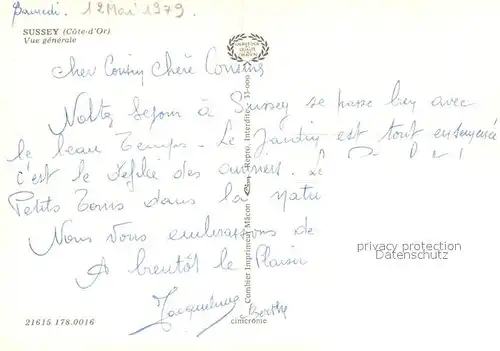 Samedi. 12 Mai 1979.
SUSSEY (Côte-d'Or)
Vue générale
Cher Cousin Chère Cousine
Notre Sejour à Sussey se passe bien avec
le beau Temps - Le Jardin est tout ensemencé
c'est le défilé des
Petits dans la natu
Nous Vous embrassons de
A bientôt le Plaisir
Jacqueline
Berthe
privacy protection
Datenschutz
Combier Imprimeur Mâcon
Repro. Interdite
21615 178.0016
cimcrome